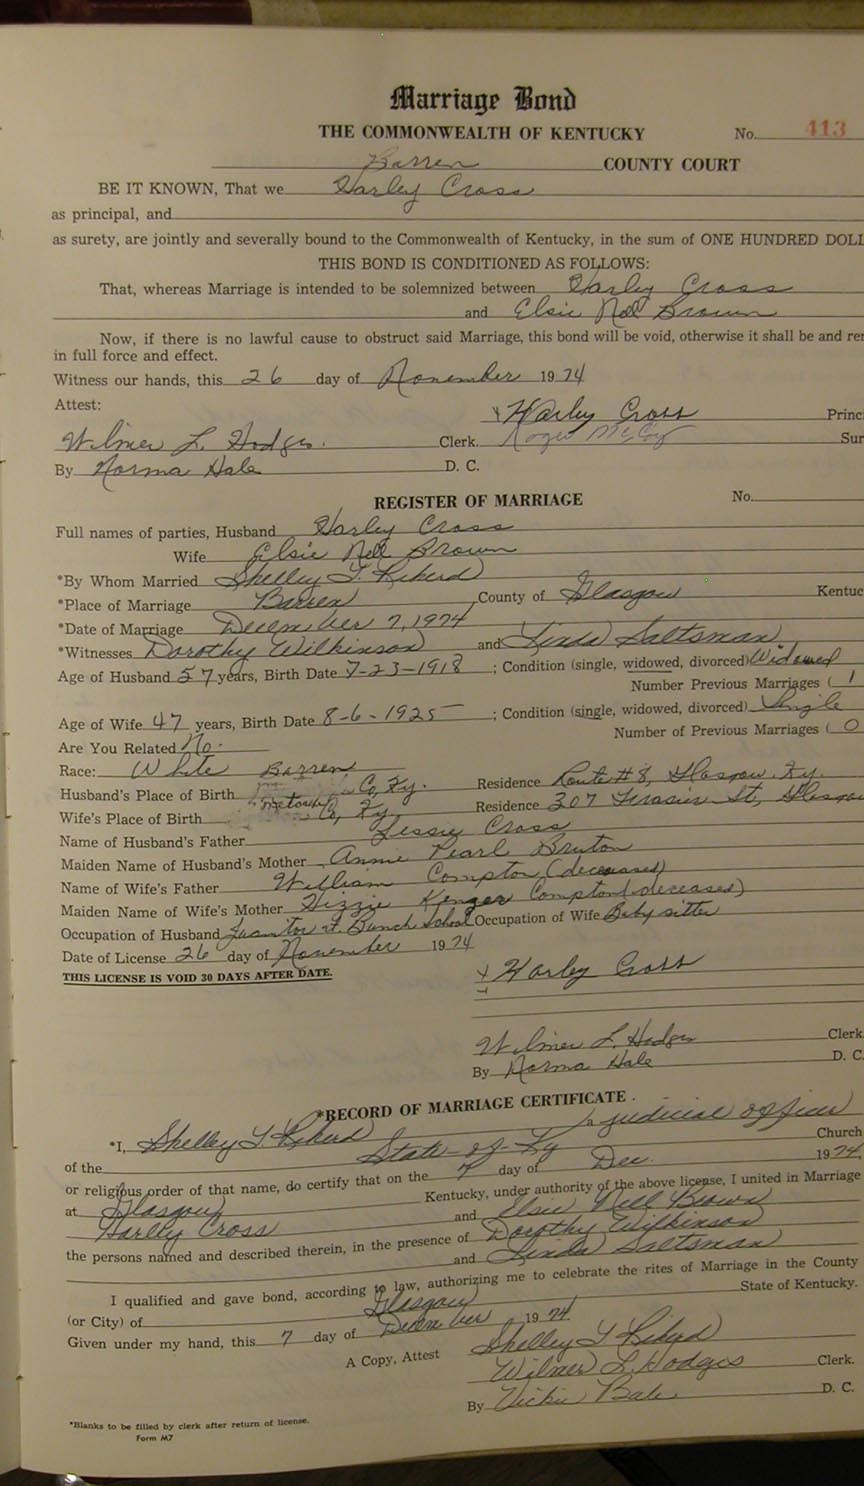 Marriage Bond
THE COMMONWEALTH OF KENTUCKY No. 413
Barren COUNTY COURT
BE IT KNOWN, That we Harley Cross
as principal, and
as surety, are jointly and severally bound to the Commonwealth of Kentucky, in the sum of ONE HUNDRED DOLL
THIS BOND IS CONDITIONED AS FOLLOWS:
That, whereas Marriage is intended to be solemnized between Harley Cross
and Elsie Nell Brown
Now, if there is no lawful cause to obstruct said Marriage, this bond will be void, otherwise it shall be and rem
in full force and effect.
Witness our hands, this 26 day of November 1974
Attest: x Harley Cross Princi
Wilmer L. Hodges. Clerk. Roger McCoy Sur
By Norma Hale D. C.
REGISTER OF MARRIAGE No.
Full names of parties, Husband Harley Cross
Wife Elsie Nell Brown
*By Whom Married Shelley T.
*Place of Marriage Barren County of Glasgow Kentuc
*Date of Marriage December 7, 1974
*Witnesses Dorothy Wilkinson and Linda Saltsman
Age of Husband 57 years, Birth Date 7-23-1918 ; Condition (single, widowed, divorced) Widowed
Number Previous Marriages ( 1
Age of Wife 47 years, Birth Date 8-6-1925 ; Condition (single, widowed, divorced) Single
Number of Previous Marriages ( 0
Are You Related No.
Race: White Barren
Husband's Place of Birth Co, Ky. Residence Route #8, Glasgow, Ky.
Wife's Place of Birth Co, Ky Residence 307 St, Glasgow
Name of Husband's Father Jessie Cross
Maiden Name of Husband's Mother Annie Pearl Bruton
Name of Wife's Father William Compton (deceased)
Maiden Name of Wife's Mother Compton (deceased)
Occupation of Husband Bunch School Occupation of Wife Baby sitter
Date of License 26 day of November 1974
THIS LICENSE IS VOID 30 DAYS AFTER DATE.
x Harley Cross
Wilmer L. Hodges Clerk
By Norma Hale D. C.
*RECORD OF MARRIAGE CERTIFICATE.
*I, Shelley T. a judicial officer
of the State of Ky Church
or religious order of that name, do certify that on the 7 day of Dec. 1974,
at Glasgow Kentucky, under authority of the above license, I united in Marriage
Harley Cross and Elsie Nell Brown
the persons named and described therein, in the presence of Dorothy Wilkinson
and Linda Saltsman
I qualified and gave bond, according to law, authorizing me to celebrate the rites of Marriage in the County
(or City) of Glasgow State of Kentucky.
Given under my hand, this 7 day of December 1974
Shelley T
A Copy, Attest Wilmer L. Hodges Clerk.
By Vickie Bale D. C.
*Blanks to be filled by clerk after return of license.
Form M7